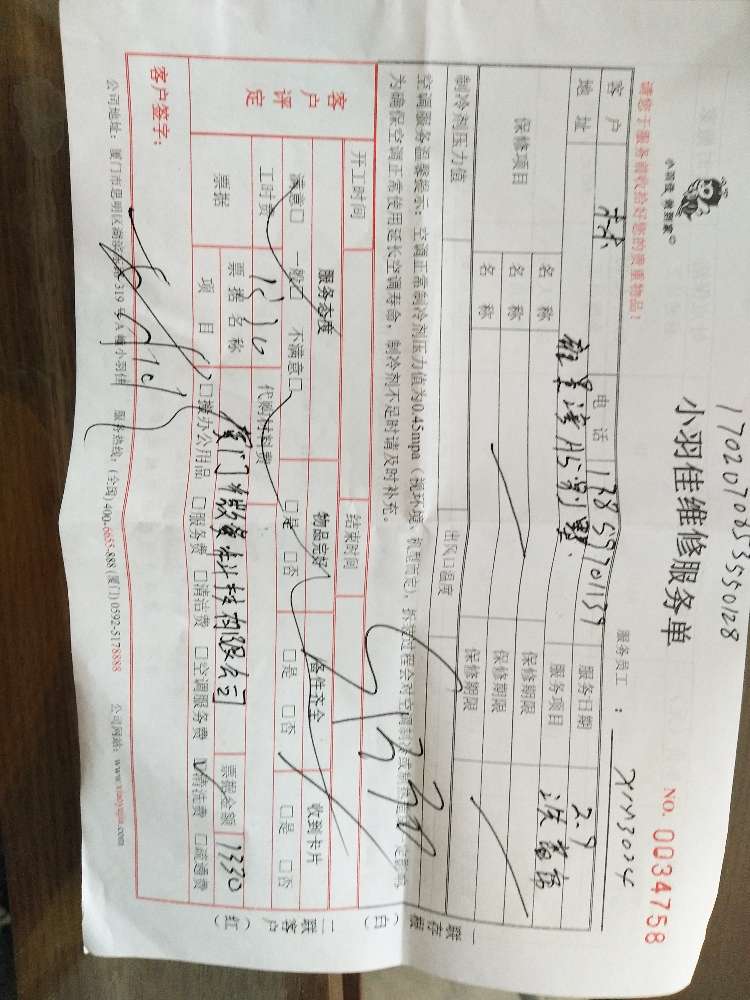 170207085355550128
小羽佳 做到家©
小羽佳维修服务单
NO. 0034758
请您于服务前收拾好您的贵重物品！
服务员工： XM3024
客户 林 电话 服务日期 2.9
地址 服务项目
保修项目 名称 保修期限
名称 保修期限
名称 保修期限
制冷剂压力值 出风口温度
空调服务温馨提示：空调正常制冷剂压力值为0.45mpa（视环境、机型而定），拆 过程会对空调制
为确保空调正常使用延长空调寿命，制冷剂不足时请及时补充。
开工时间 结束时间
客户评定 服务态度 物品完好 备件齐全 收到卡片
满意□ 一般□ 不满意□ □是 □否 □是 □否 □是 □否
工时费 1330 代购材料费
票据 票据名称 厦门 有限公司 票据金额 1330
项目 □操办公用品 □服务费 □清洁费 □空调服务费 清洗费 □疏通费
客户签字：
公司地址：厦门市思明区 319号A幢小羽佳 服务热线：(全国)400-6655-888 (厦门)0592-5178888 公司网站：www.xiaoyujia.com
一联存根（白）
二联客户（红）